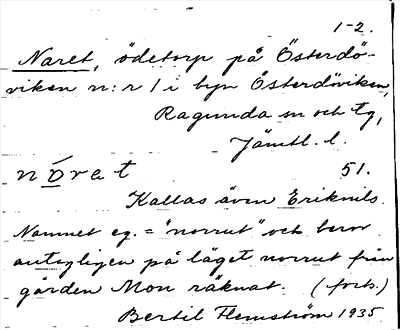 1-2.
Naret, ödetorp på Österdö-
viken n:r 1 i byn Österdöviken,
Ragunda sn och tg,
Jämtl. l.
nórat 51.
Kallas även Eriknils.
Namnet eg. = "norrut" och beror
antagligen på läget norrut från
gården Mon räknat. (forts.)
Bertil Flemström 1935